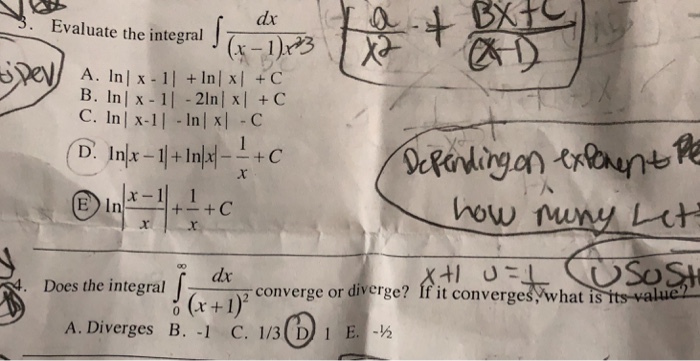 3. Evaluate the integral ∫ dx / (x – 1)x²3
a/x² + Bx+C/(x-1)
A. ln| x - 1| + ln| x| + C
B. ln| x - 1| - 2ln| x| + C
C. ln| x-1| - ln| x| - C
D. ln|x – 1| + ln|x| – 1/x + C
E ln|x – 1 / x| + 1/x + C
Depending on exponent
how many
x+1 u=1
4. Does the integral ∫₀^∞ dx / (x + 1)² converge or diverge? If it converges, what is its value?
A. Diverges B. -1 C. 1/3 D 1 E. -½